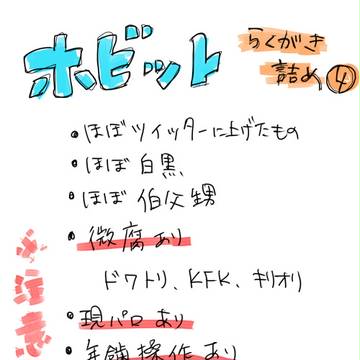 ホビット
らくがき
詰め④
・ほぼツイッターに上げたもの
・ほぼ白黒
・ほぼ伯父甥
・微腐あり
ドワトリ、KFK、キリオリ
・現パロあり
・年齢操作あり
注意